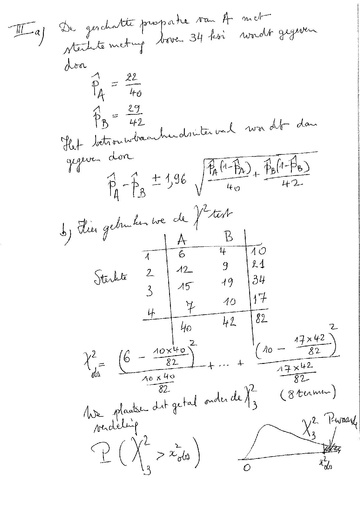 III a) De geschatte proportie van A met
sterktemeting boven 34 ksi wordt gegeven
door
p̂_A = 22/40
p̂_B = 29/42
Het betrouwbaarheidsinterval wordt dan
gegeven door
p̂_A - p̂_B ± 1,96 √(p̂_A(1-p̂_A)/40 + p̂_B(1-p̂_B)/42)
b) Hier gebruiken we de χ² test
A B
1 6 4 10
Sterkte 2 12 9 21
3 15 19 34
4 7 10 17
40 42 82
χ²_obs = (6 - 10×40/82)² / (10×40/82) + ... + (10 - 17×42/82)² / (17×42/82)
(8 termen)
We plaatsen dit getal onder de χ²_3
verdeling
P(χ²_3 > x²_obs)
χ²_3 P-waarde
0 x²_obs